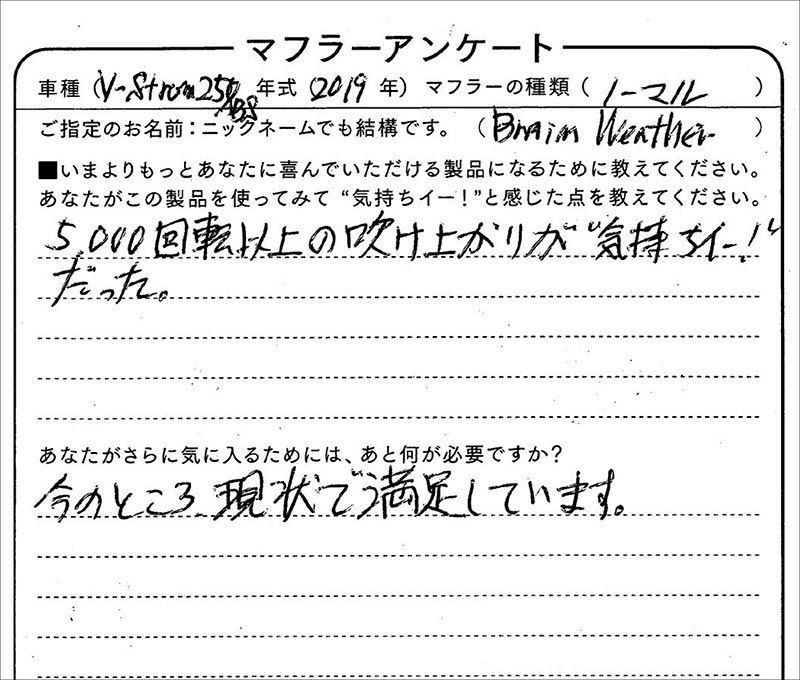 マフラーアンケート
車種（V-Strom250 ABS 年式（2019 年）マフラーの種類（ ノーマル ）
ご指定のお名前：ニックネームでも結構です。（Brain Weather ）
■いまよりもっとあなたに喜んでいただける製品になるために教えてください。
あなたがこの製品を使ってみて“気持ちイー！”と感じた点を教えてください。
5,000回転以上の吹け上がりが“気持ちイー！”
だった。
あなたがさらに気に入るためには、あと何が必要ですか？
今のところ現状で満足しています。